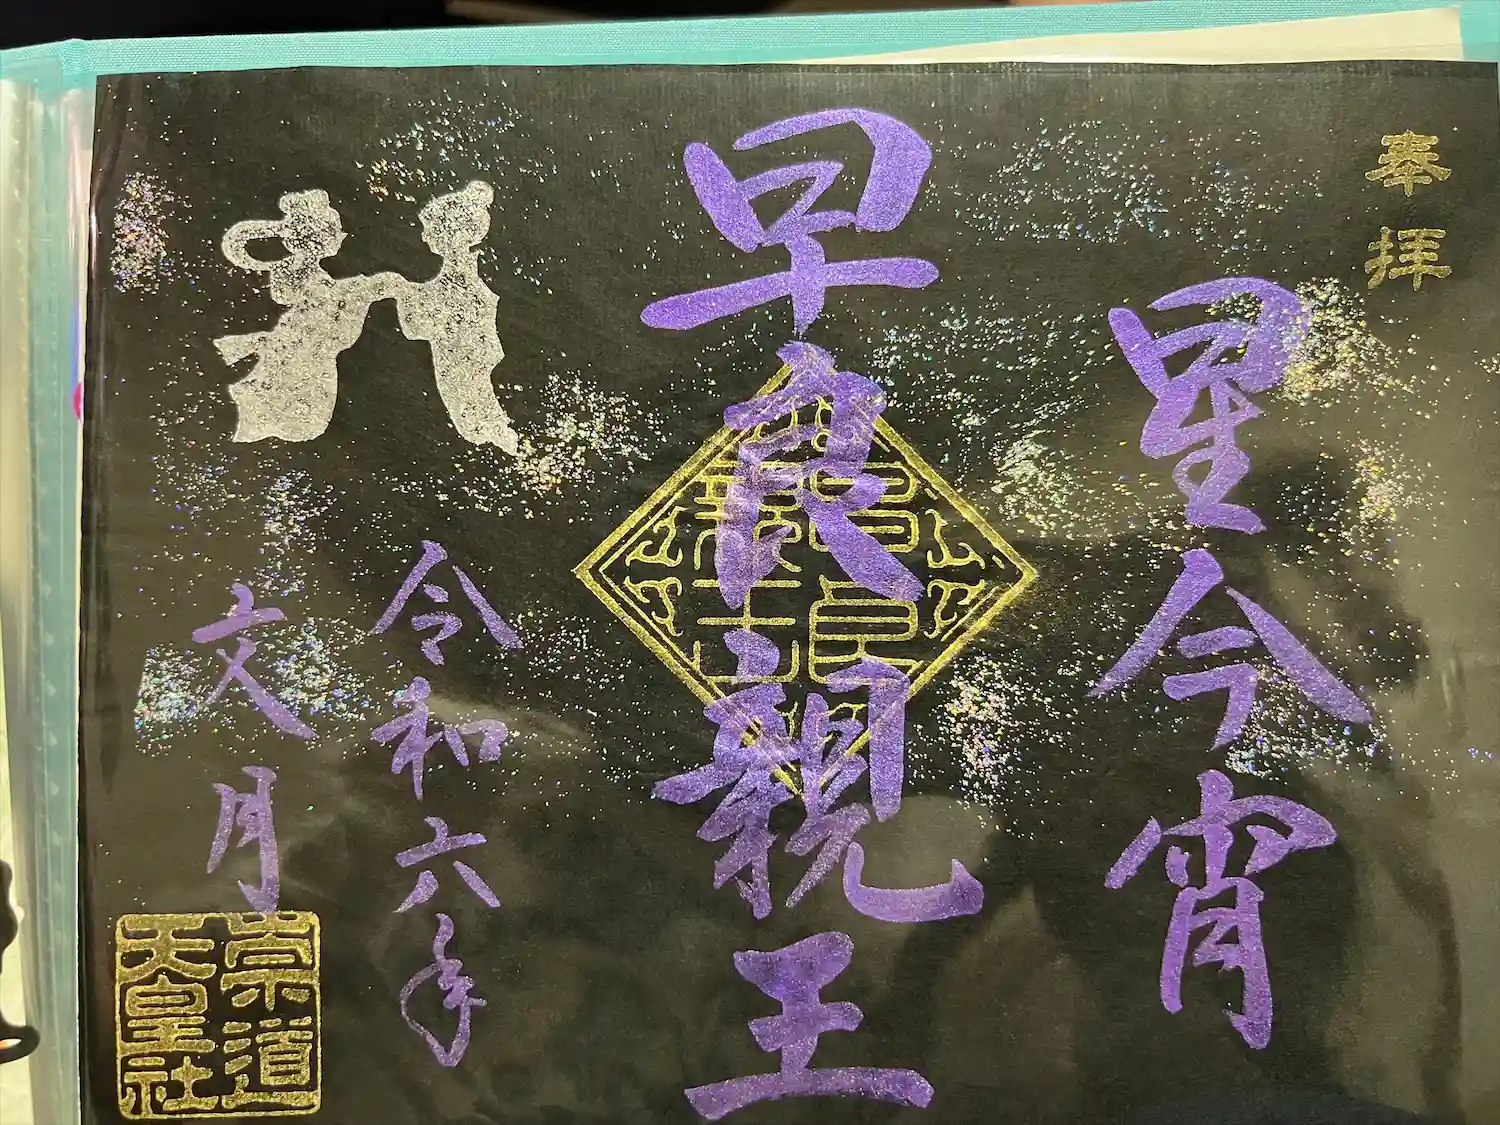 奉拝
星今宵
早良親王
早良
親王
令和六年
文月
崇道
天皇社